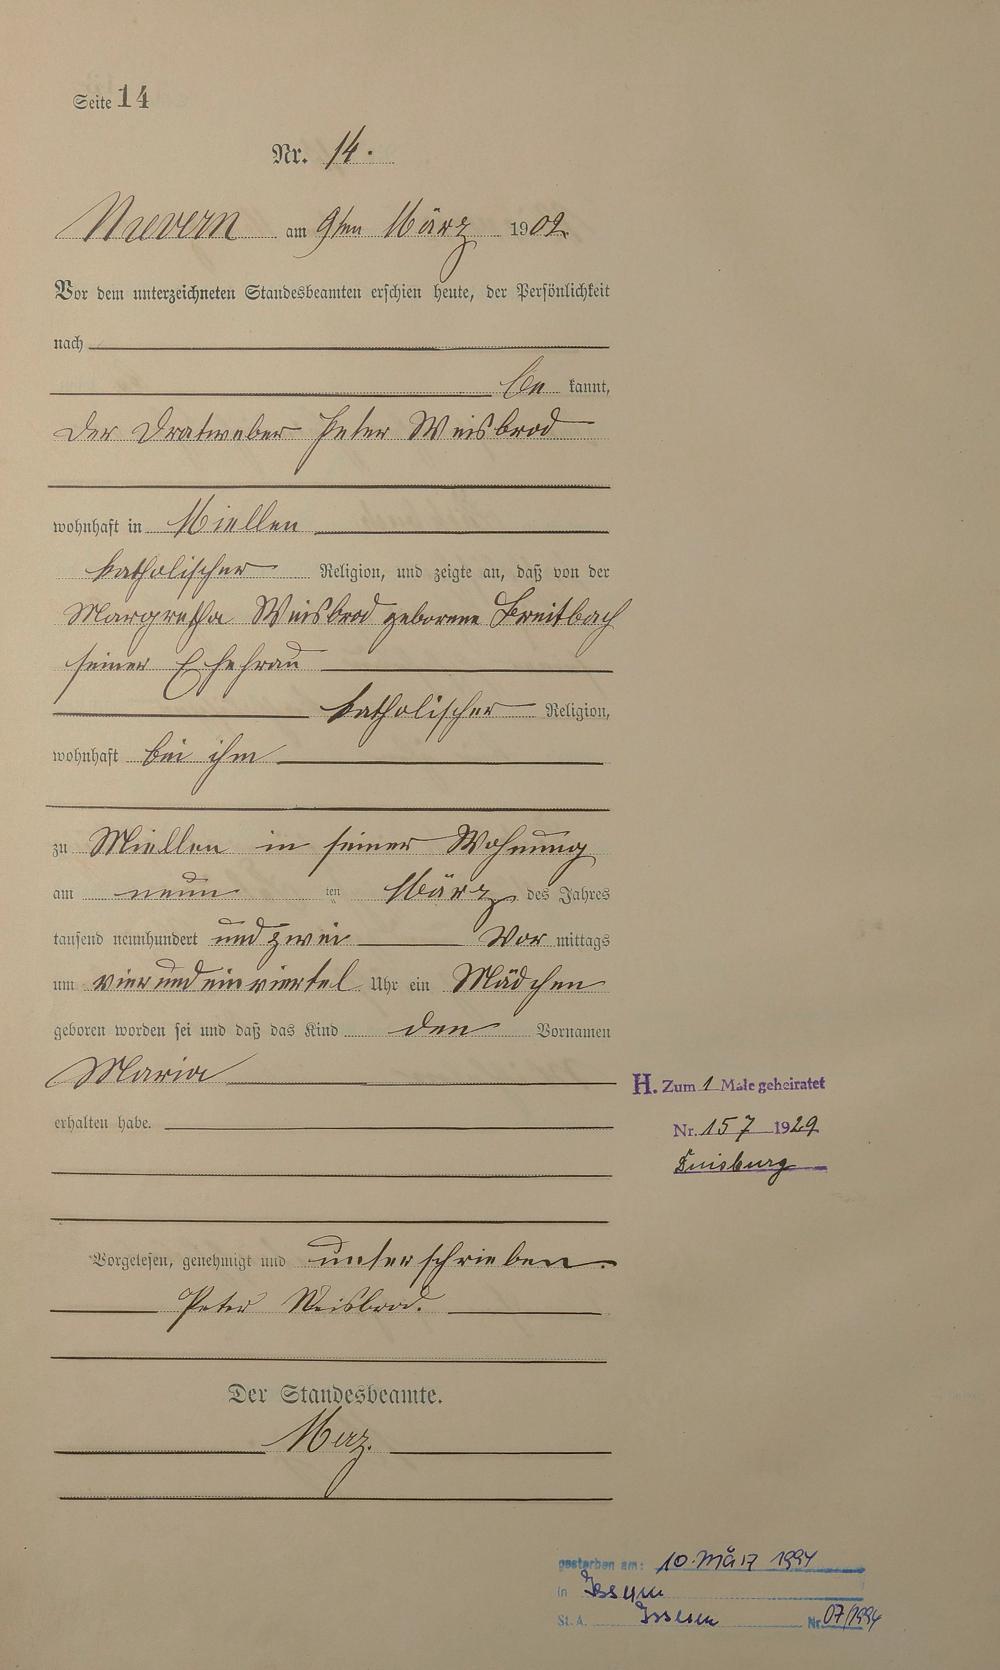 Seite 14
Nr. 14.
Nievern am 9ten März 1902.
Vor dem unterzeichneten Standesbeamten erschien heute, der Persönlichkeit
nach
be kannt,
der Dratweber Peter Weisbrod
wohnhaft in Miellen
katholischer Religion, und zeigte an, daß von der
Margretha Weisbrod geborene Breitbach
seiner Ehefrau
katholischer Religion,
wohnhaft bei ihm
zu Miellen in seiner Wohnung
am neun ten März des Jahres
tausend neunhundert und zwei Vor mittags
um vier und ein viertel Uhr ein Mädchen
geboren worden sei und daß das Kind den Vornamen
Maria
H. Zum 1 Male geheiratet
erhalten habe.
Nr. 157 1929
Duisburg
Vorgelesen, genehmigt und unterschrieben.
Peter Weisbrod.
Der Standesbeamte.
gestorben am: 10. März 1994
in
St. A. Nr. 07/1994